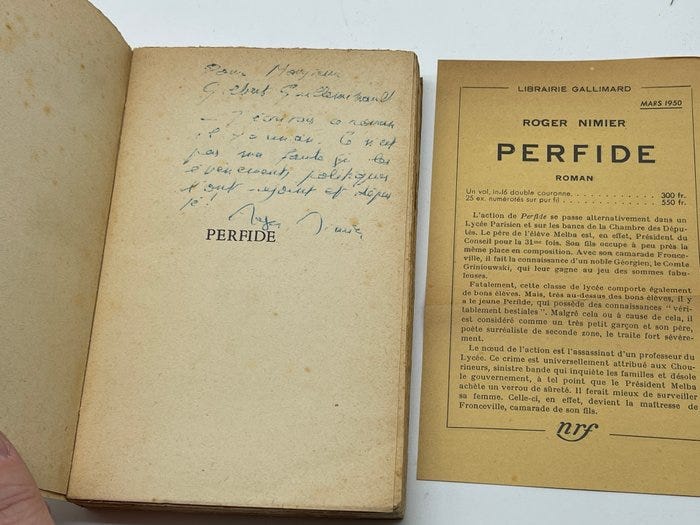 Pour Monsieur
Gilbert Guilleminault
— J'écrivais ce roman
il y a un an. Ce n'est
pas ma faute si les
événements politiques
l'ont rejoint et dépas-
sé !
Roger Nimier
PERFIDE
LIBRAIRIE GALLIMARD
MARS 1950
ROGER NIMIER
PERFIDE
ROMAN
Un vol. in-16 double couronne. . . . . . . . . . . . 300 fr.
25 ex. numérotés sur pur fil . . . . . . . . . . . . 550 fr.
L'action de Perfide se passe alternativement dans un
Lycée Parisien et sur les bancs de la Chambre des Dépu-
tés. Le père de l'élève Melba est, en effet, Président du
Conseil pour la 31me fois. Son fils occupe à peu près la
même place en composition. Avec son camarade France-
ville, il fait la connaissance d'un noble Géorgien, le Comte
Griniouwski, qui leur gagne au jeu des sommes fabu-
leuses.
Fatalement, cette classe de lycée comporte également
de bons élèves. Mais, très au-dessus des bons élèves, il y
a le jeune Perfide, qui possède des connaissances " véri-
tablement bestiales ". Malgré cela ou à cause de cela, il
est considéré comme un très petit garçon et son père,
poète surréaliste de seconde zone, le traite fort sévère-
ment.
Le nœud de l'action est l'assassinat d'un professeur du
Lycée. Ce crime est universellement attribué aux Chou-
rineurs, sinistre bande qui inquiète les familles et désole
le gouvernement, à tel point que le Président Melba
achète un verrou de sûreté. Il ferait mieux de surveiller
sa femme. Celle-ci, en effet, devient la maîtresse de
Franceville, camarade de son fils.
nrf